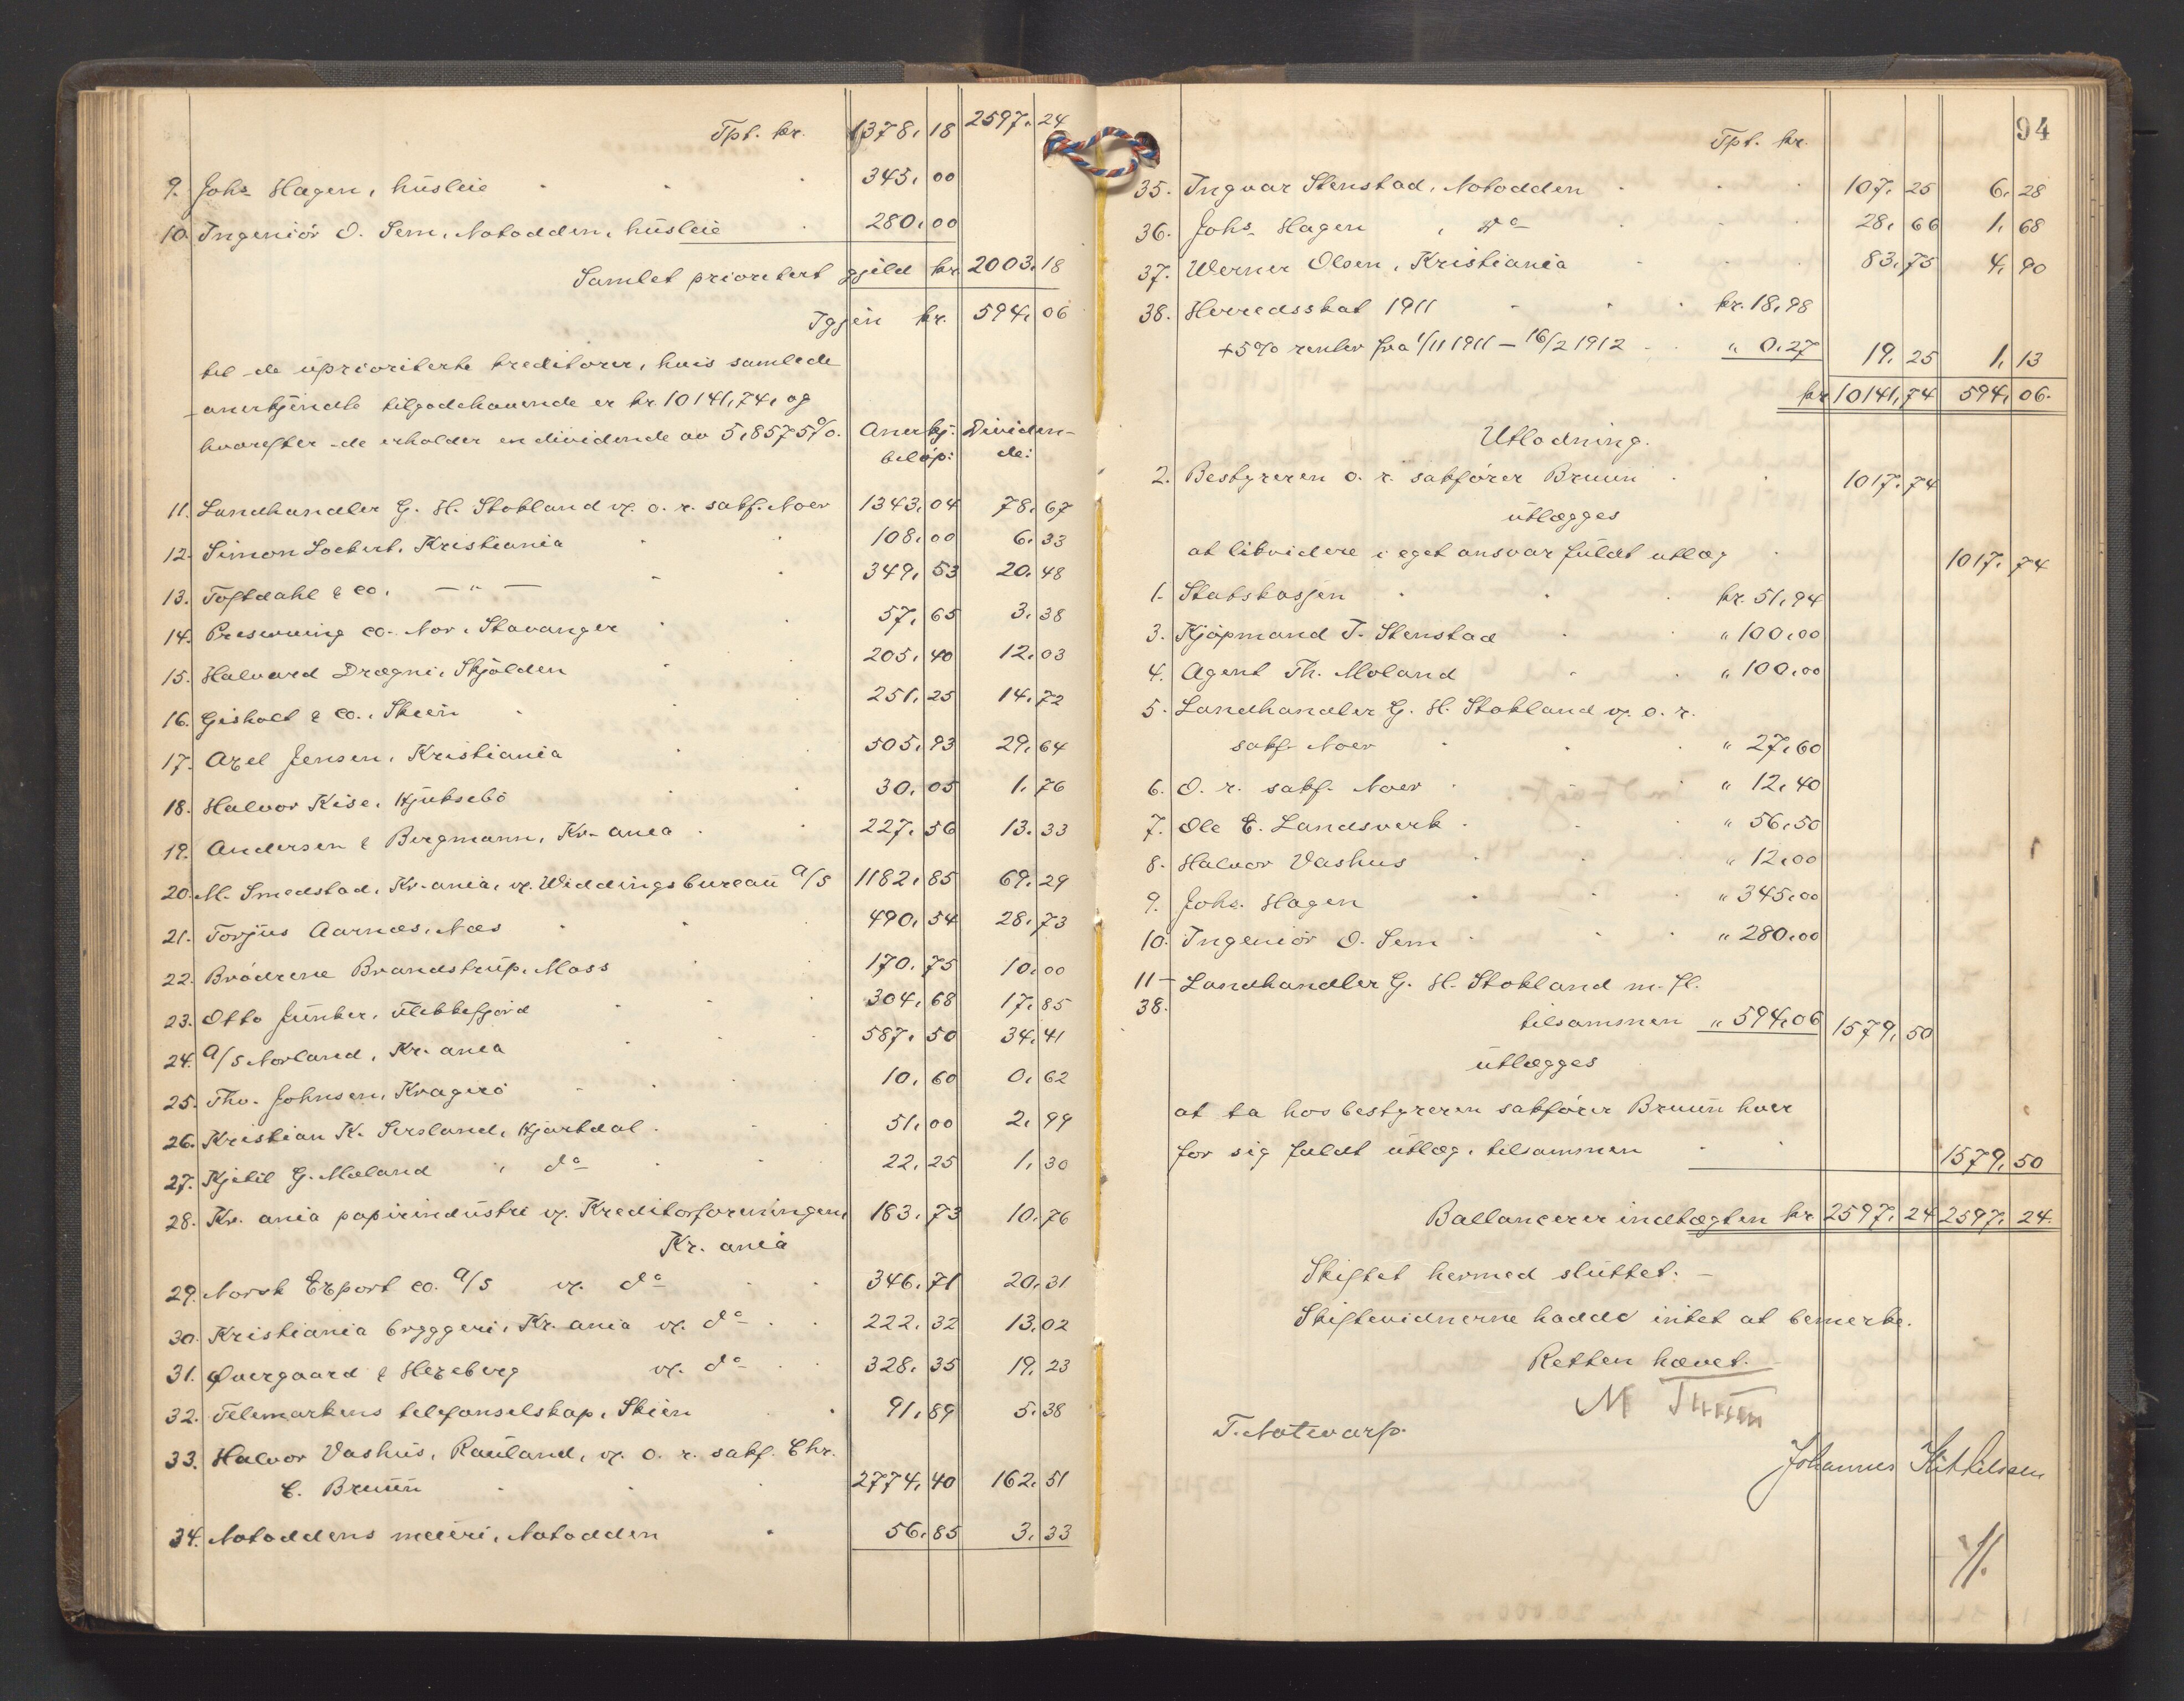 Tpt. kr. 1378,18 2597,24
9. Johs. Hagen, husleie 345,00
10. Ingeniør O. Sem, Notodden, husleie 280,00
Samlet prioritert gjeld kr. 2003,18
Igjen kr. 594,06
til de uprioriterte kreditorer, hvis samlede
anerkjendte tilgodehavende er kr. 10141,74, og
hvorefter de erholder en dividende av 5,8575%. Anerkj. Dividen-
beløp: de:
11. Landhandler G. H. Stokland v. o. r. sakf. Noer 1343,04 78,67
12. Simon Loekert, Kristiania 108,00 6,33
13. Toftdahl & co. —"— 349,53 20,48
14. Preserving co. Nor., Stavanger 57,65 3,38
15. Halvard Drægni, Skjolden 205,40 12,03
16. Gisholt & co., Skien 251,25 14,72
17. Axel Jensen, Kristiania 505,93 29,64
18. Halvor Kise, Hjuksebø 30,05 1,76
19. Andersen & Bergmann, Kr.ania 227,56 13,33
20. M. Smedstad, Kr.ania, v. Widdingsbureau A/S 1182,85 69,29
21. Torjus Aarnæs, Næs 490,54 28,73
22. Brødrene Brandstrup, Moss 170,75 10,00
23. Otto Junker, Flekkefjord 304,68 17,85
24. A/S Norland, Kr.ania 587,50 34,41
25. Thv. Johnsen, Kragerø 10,60 0,62
26. Kristian K. Sersland, Hjartdal 51,00 2,99
27. Kjetil G. Moland " do 22,25 1,30
28. Kr.ania papirindustri v. Kreditorforeningen, 183,73 10,76
Kr.ania
29. Norsk Export co. A/S v. do 346,71 20,31
30. Kristiania bryggeri, Kr.ania v. do 222,32 13,02
31. Øvergaard & Hexeberg v. do 328,35 19,23
32. Telemarkens telefonselskap, Skien 91,89 5,38
33. Halvor Vashus, Rauland, v. o. r. sakf. Chr.
C. Bruun 2774,40 162,51
34. Notoddens meieri, Notodden 56,85 3,33
94
Tpt. kr.
35. Ingvar Stenstad, Notodden 107,25 6,28
36. Johs. Hagen, do 28,66 1,68
37. Werner Olsen, Kristiania 83,75 4,90
38. Herredsskat 1911 kr. 18,98
+5% renter fra 1/11 1911 – 16/2 1912 " 0,27 19,25 1,13
kr. 10141,74 594,06.
Utlodning.
2. Bestyreren o. r. sakfører Bruun 1017,74
utlægges
at likvidere i eget ansvar fuldt utlæg 1017,74
1. Statskassen kr. 51,94
3. Kjøpmand I. Stenstad " 100,00
4. Agent Th. Moland " 100,00
5. Landhandler G. H. Stokland v. o. r.
sakf. Noer " 27,60
6. O. r. sakf. Noer " 12,40
7. Ole E. Landsverk " 56,50
8. Halvor Vashus " 12,00
9. Johs. Hagen " 345,00
10. Ingeniør O. Sem " 280,00
11– Landhandler G. H. Stokland m. fl.
38. tilsammen " 594,06 1579,50
utlægges
at ta hos bestyreren sakfører Bruun hver
for sig fuldt utlæg, tilsammen 1579,50
Ballancerer indtægten kr. 2597,24 2597,24.
Skiftet hermed sluttet. —
Skiftevidnerne hadde intet at bemerke.
Retten hævet.
T. Notevarp.
Johannes Kittilsen